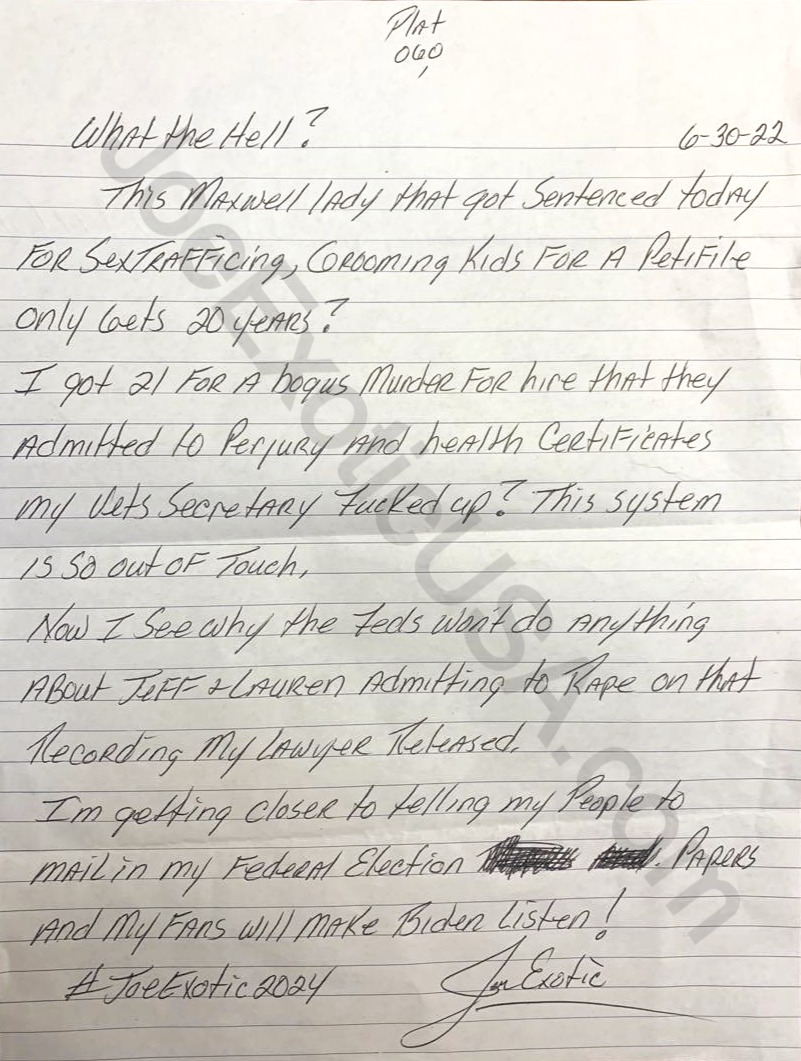 Plat
060
What the Hell? 6-30-22
This Maxwell lady that got Sentenced today
For SexTrafficing, Grooming Kids For A Petifile
only Gets 20 years?
I got 21 For A bogus Murder For hire that they
Admitted to Perjury And health Certificates
my Vets Secretary Fucked up? This system
is so out of Touch,
Now I See why the Feds won't do Anything
About Jeff & Lauren Admitting to Rape on that
Recording My Lawyer Released.
I'm getting closer to telling my People to
mail in my Federal Election Papers
And My Fans will make Biden Listen!
#JoeExotic2024 Joe Exotic
JoeExoticUSA.com